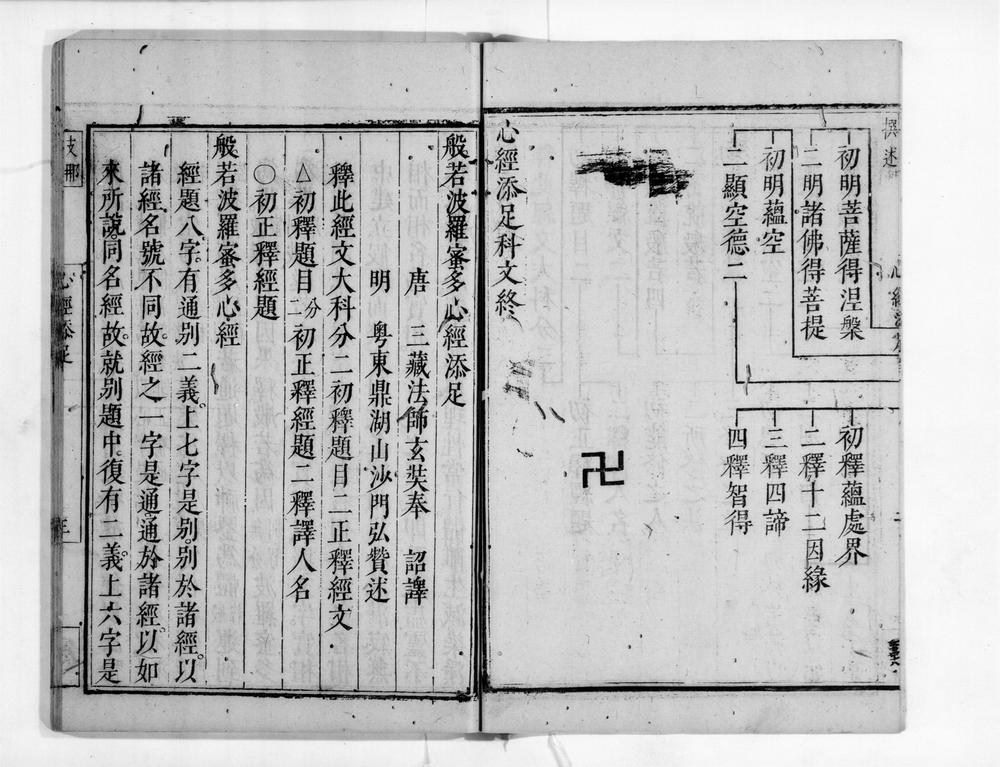 撰述
初明菩薩得涅槃
二明諸佛得菩提
初明蘊空
二顯空德二
初釋蘊處界
二釋十二因緣
三釋四諦
四釋智得
心經添足科文終
卍
般若波羅蜜多心經添足
唐　三藏法師玄奘奉　詔譯
明　粵東鼎湖山沙門弘贊述
釋此經文大科分二初釋題目二正釋經文
△初釋題目分二初正釋經題二釋譯人名
○初正釋經題
般若波羅蜜多心經
經題八字。有通別二義。上七字是別。別於諸經。以
諸經名號不同故。經之一字是通。通於諸經。以如
來所說。同名經故。就別題中。復有二義。上六字是
支那
心經添足